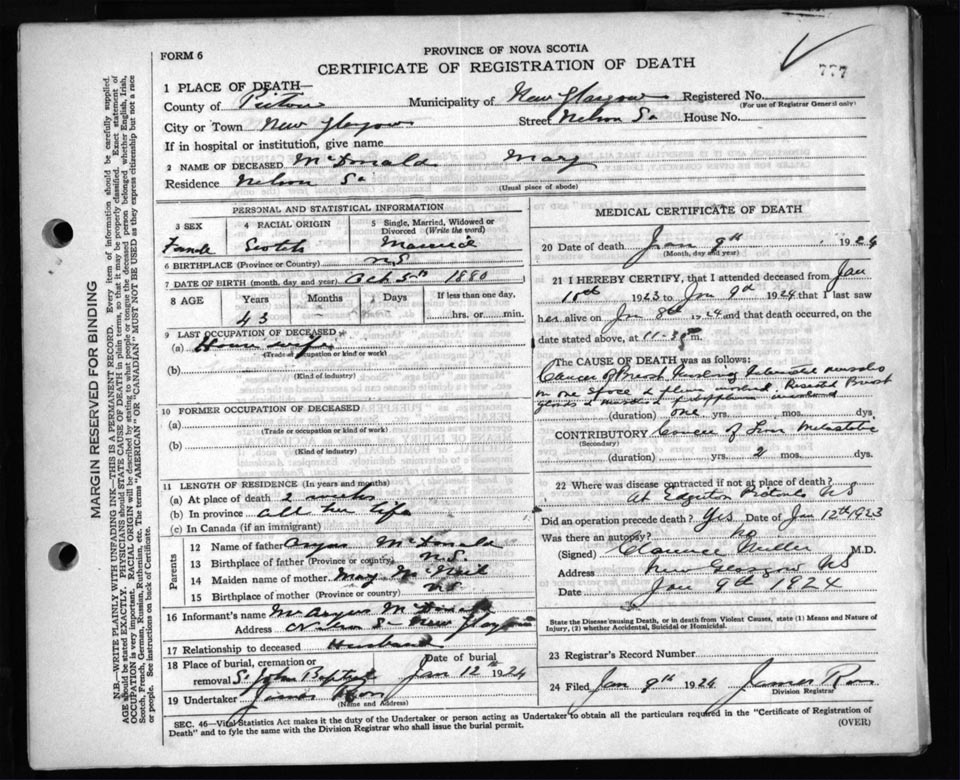 FORM 6
PROVINCE OF NOVA SCOTIA
CERTIFICATE OF REGISTRATION OF DEATH
777
1 PLACE OF DEATH—
County of Pictou Municipality of New Glasgow Registered No.
(For use of Registrar General only)
City or Town New Glasgow Street Nelson St House No.
If in hospital or institution, give name
2 NAME OF DECEASED McDonald Mary
Residence Nelson St
(Usual place of abode)
PERSONAL AND STATISTICAL INFORMATION
3 SEX 4 RACIAL ORIGIN 5 Single, Married, Widowed or Divorced (Write the word)
Female Scotch Married
6 BIRTHPLACE (Province or Country) N.S.
7 DATE OF BIRTH (month, day and year) Oct 5th 1880
8 AGE Years Months Days If less than one day,
43 hrs. or min.
9 LAST OCCUPATION OF DECEASED
(a) House wife
(Trade or occupation or kind or work)
(b)
(Kind of industry)
10 FORMER OCCUPATION OF DECEASED
(a)
(Trade or occupation or kind of work)
(b)
(Kind of industry)
11 LENGTH OF RESIDENCE (In years and months)
(a) At place of death 2 weeks
(b) In province all her life
(c) In Canada (if an immigrant)
Parents
12 Name of father Angus McDonald
13 Birthplace of father (Province or country) N.S.
14 Maiden name of mother Mary McNeil
15 Birthplace of mother (Province or country) N.S.
16 Informant's name Mr Angus McDonald
Address Nelson St New Glasgow
17 Relationship to deceased Husband
18 Place of burial, cremation or removal St John Baptist Date of burial Jan 12th 1924
19 Undertaker James Ross
(Name and Address)
MEDICAL CERTIFICATE OF DEATH
20 Date of death Jan 9th 1924
(Month, day and year)
21 I HEREBY CERTIFY, that I attended deceased from Jan
10th 1923 to Jan 9th 1924 that I last saw
her alive on Jan 8th 1924 and that death occurred, on the
date stated above, at m.
The CAUSE OF DEATH was as follows:
Cancer of Breast
(duration) one yrs. mos. dys.
CONTRIBUTORY Cancer of Metastatic
(Secondary)
(duration) yrs. 2 mos. dys.
22 Where was disease contracted if not at place of death?
At NS
Did an operation precede death? Yes Date of Jan 12th 1923
Was there an autopsy? No
(Signed) Clarence Miller M.D.
Address New Glasgow NS
Date Jan 9th 1924
State the Disease causing Death, or in death from Violent Causes, state (1) Means and Nature of Injury, (2) whether Accidental, Suicidal or Homicidal.
23 Registrar's Record Number
24 Filed Jan 9th 1924 James Ross
Division Registrar
SEC. 46—Vital Statistics Act makes it the duty of the Undertaker or person acting as Undertaker to obtain all the particulars required in the "Certificate of Registration of
Death" and to fyle the same with the Division Registrar who shall issue the burial permit. (OVER)
MARGIN RESERVED FOR BINDING
N.B.—WRITE PLAINLY WITH UNFADING INK—THIS IS A PERMANENT RECORD. Every item of information should be carefully supplied.
AGE should be stated EXACTLY. PHYSICIANS should STATE CAUSE OF DEATH in plain terms, so that it may be properly classified. Exact statement of
OCCUPATION is very important. RACIAL ORIGIN will be described by stating to what people or tongue the deceased person belonged whether English, Irish,
Scotch, French, German, Russian, Ruthenian, etc. The terms "AMERICAN" or "CANADIAN" MUST NOT BE USED as they express citizenship but not a race
or people. See instructions on back of Certificate.